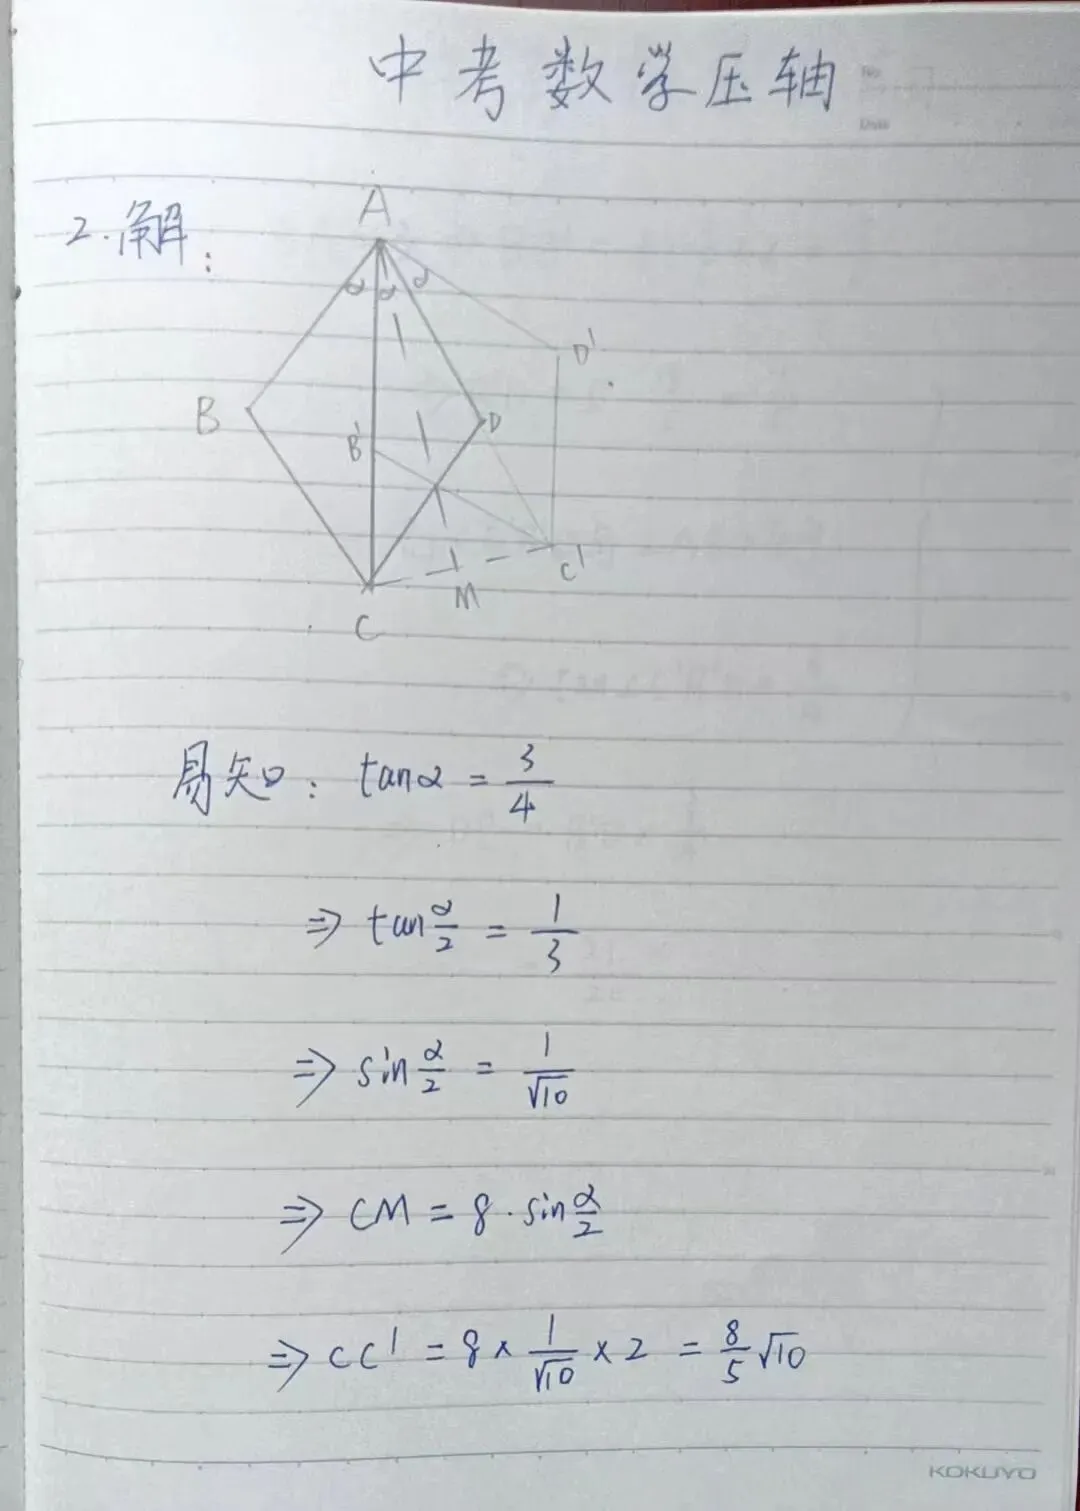 中考数学压轴
No
Date
2.解:
A
α α α
D'
B
B'
D
C'
M
C
易知: tanα = 3/4
⇒ tan α/2 = 1/3
⇒ sin α/2 = 1/√10
⇒ CM = 8·sin α/2
⇒ CC' = 8 × 1/√10 × 2 = 8/5 √10
KOKUYO